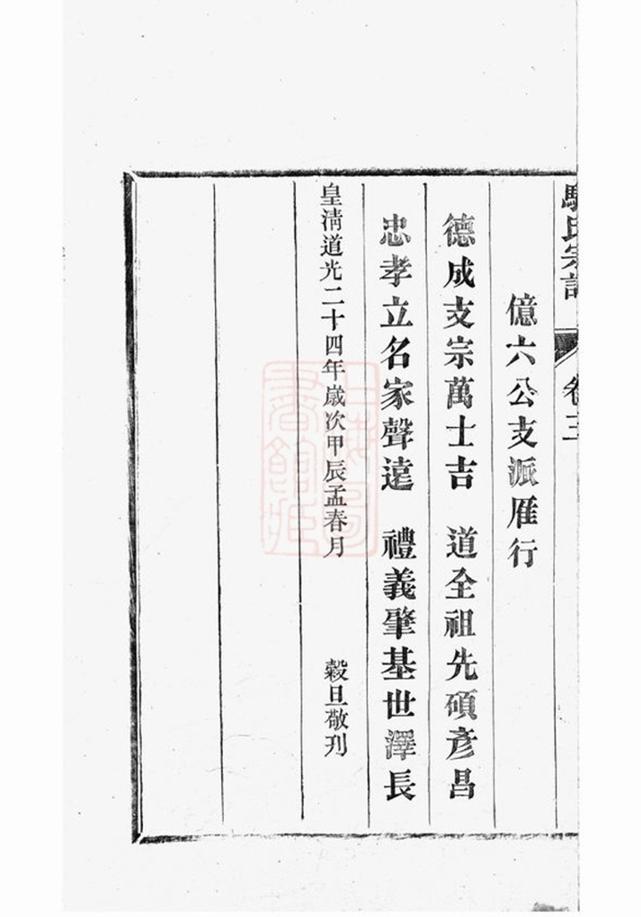 氏宗譜 卷三
億六公支派雁行
德成支宗萬士吉 道全祖先碩彥昌
忠孝立名家聲遠 禮義肇基世澤長
皇清道光二十四年歲次甲辰孟春月 穀旦敬刊
上海圖
書館藏